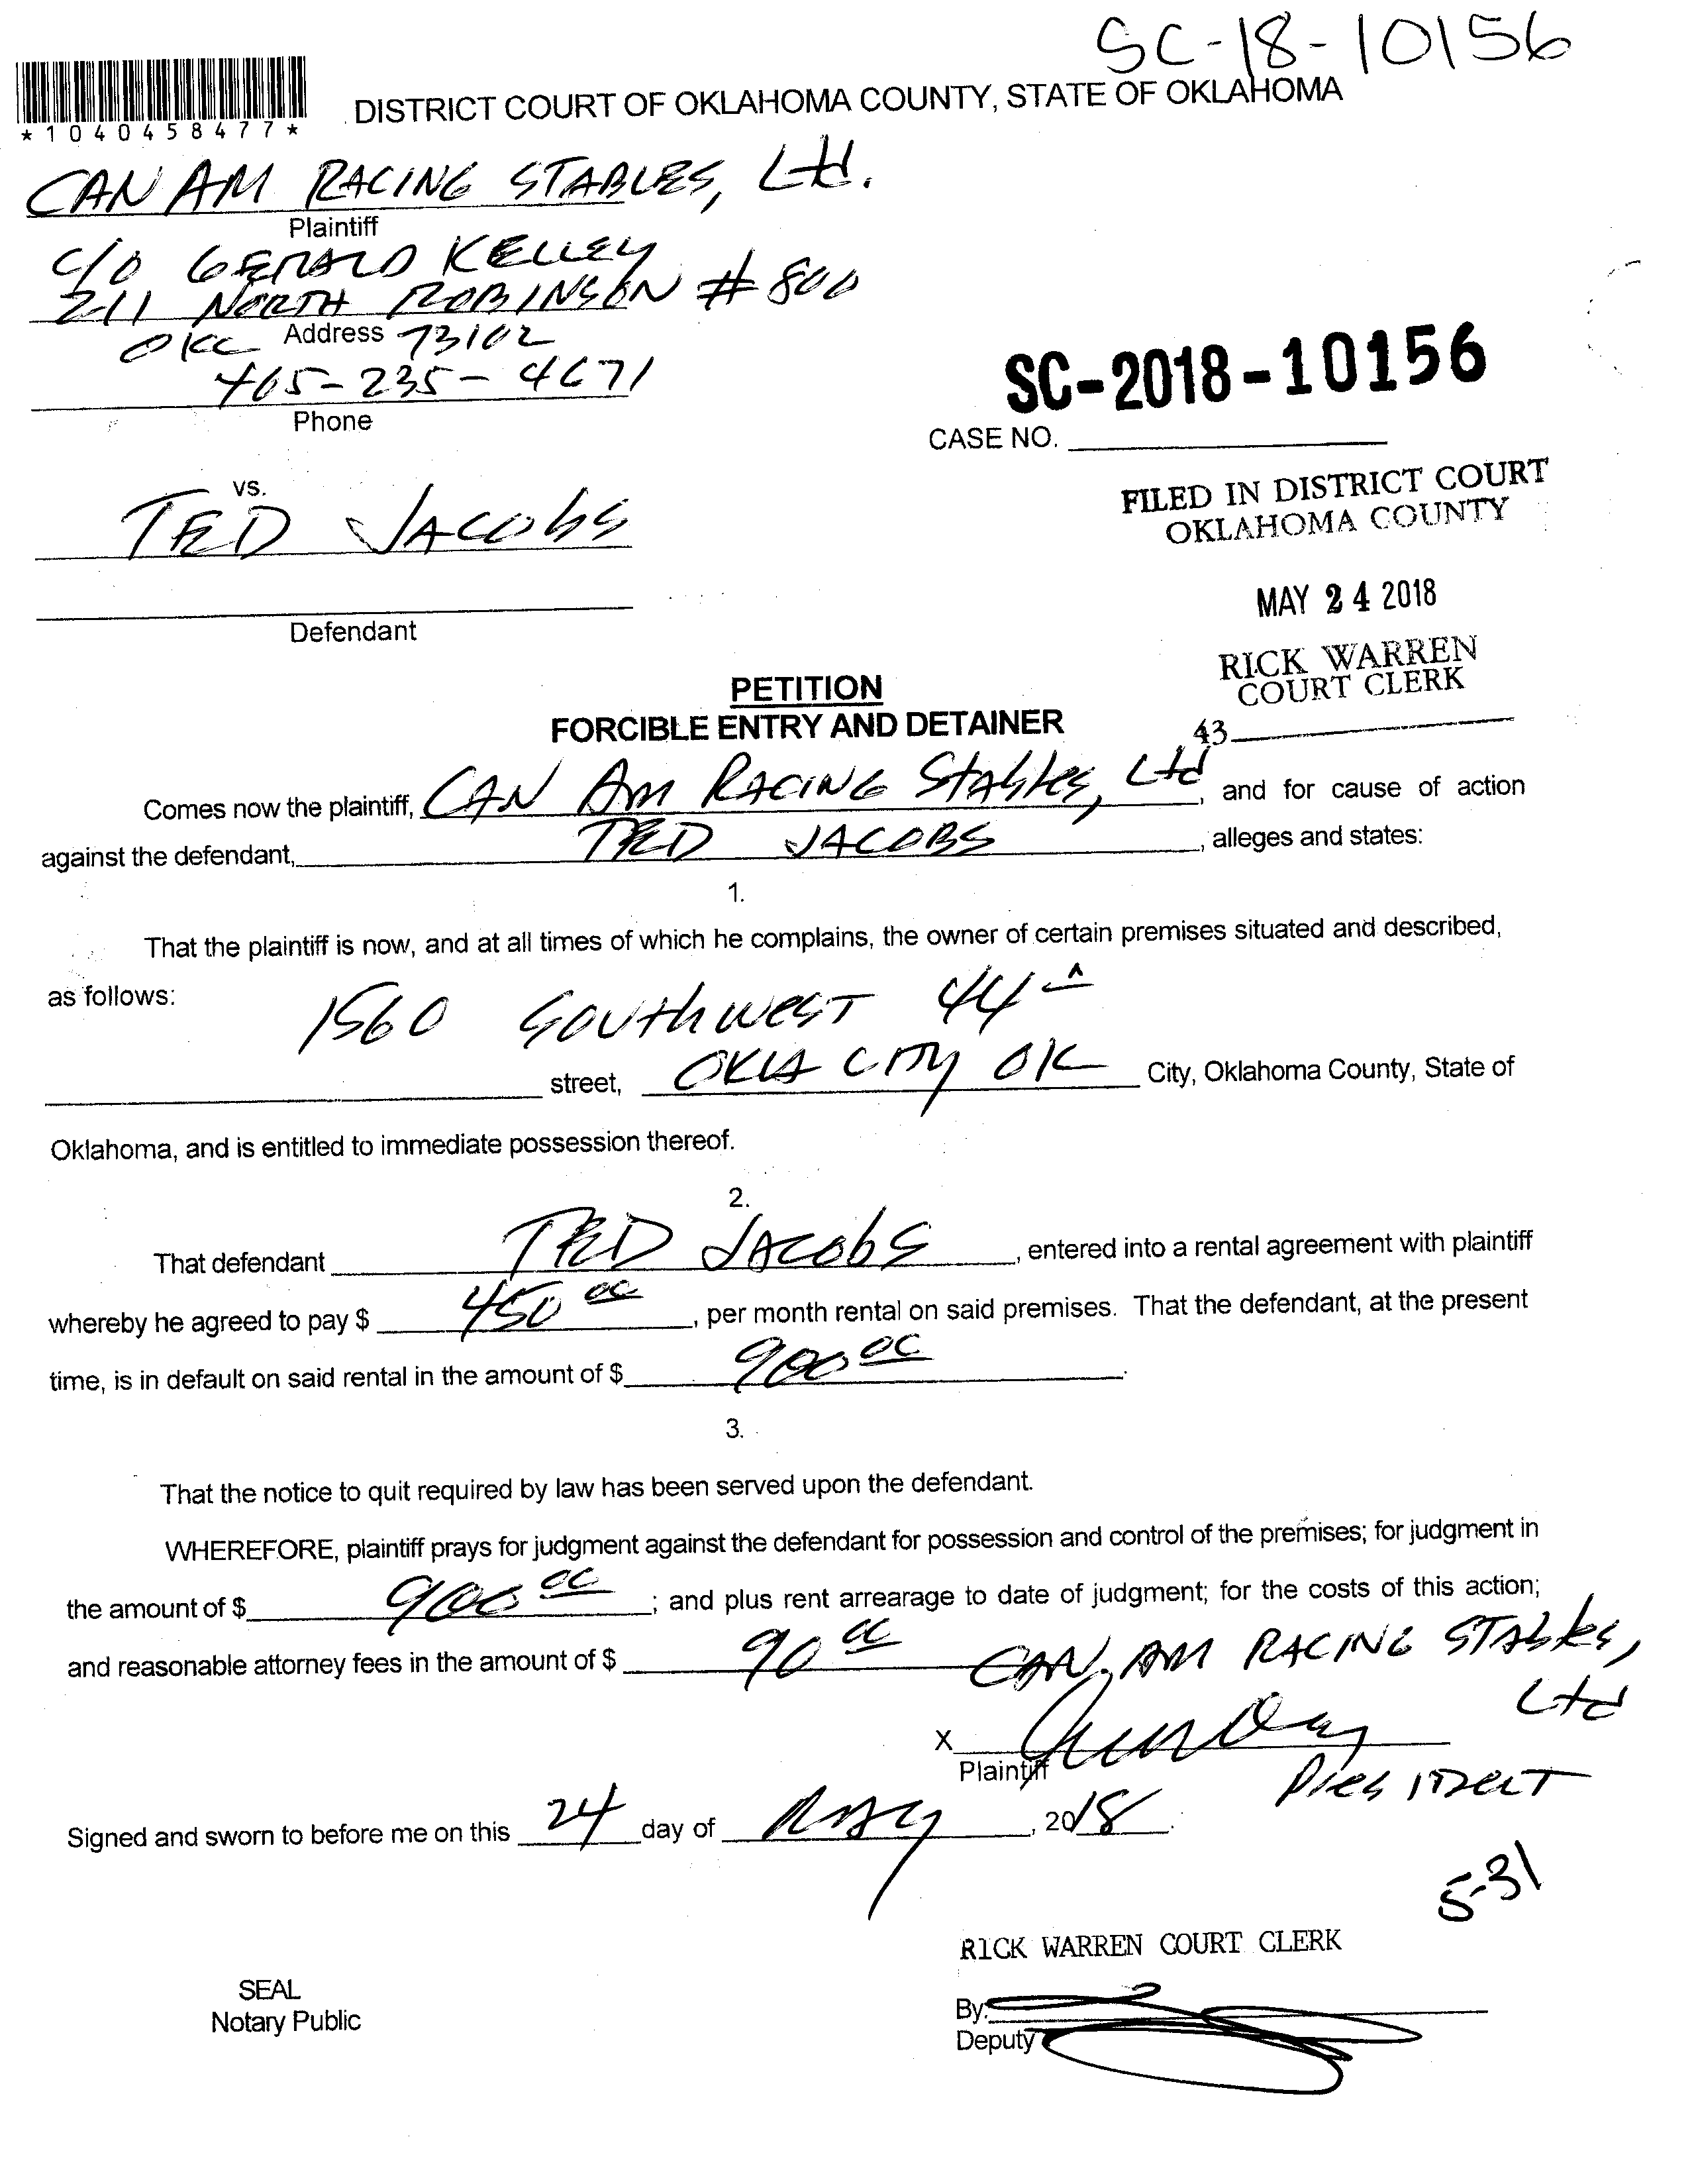 SC-18-10156
*1040458477*
DISTRICT COURT OF OKLAHOMA COUNTY, STATE OF OKLAHOMA
CAN AM RACING STABLES, Ltd.
Plaintiff
c/o GERALD KELLEY
211 NORTH ROBINSON #800
Address
OKC 73102
405-235-4671
Phone
SC-2018-10156
CASE NO.
vs.
TED JACObS
FILED IN DISTRICT COURT
OKLAHOMA COUNTY
MAY 24 2018
Defendant
RICK WARREN
COURT CLERK
43
PETITION
FORCIBLE ENTRY AND DETAINER
Comes now the plaintiff, CAN Am RACING StAbles, Ltd, and for cause of action
against the defendant, TED JACOBS, alleges and states:
1.
That the plaintiff is now, and at all times of which he complains, the owner of certain premises situated and described,
as follows:
1560 SouthweST 44
street, OKLA CITY OK City, Oklahoma County, State of
Oklahoma, and is entitled to immediate possession thereof.
2.
That defendant TED JACObS, entered into a rental agreement with plaintiff
whereby he agreed to pay $ 450 00, per month rental on said premises. That the defendant, at the present
time, is in default on said rental in the amount of $ 900 00.
3.
That the notice to quit required by law has been served upon the defendant.
WHEREFORE, plaintiff prays for judgment against the defendant for possession and control of the premises; for judgment in
the amount of $ 900 00; and plus rent arrearage to date of judgment; for the costs of this action;
and reasonable attorney fees in the amount of $ 90 00 CAN AM RACING STAbles,
Ltd
X
Plaintiff PresIDenT
Signed and sworn to before me on this 24 day of MAy, 2018.
5-31
RICK WARREN COURT CLERK
SEAL
Notary Public
By:
Deputy